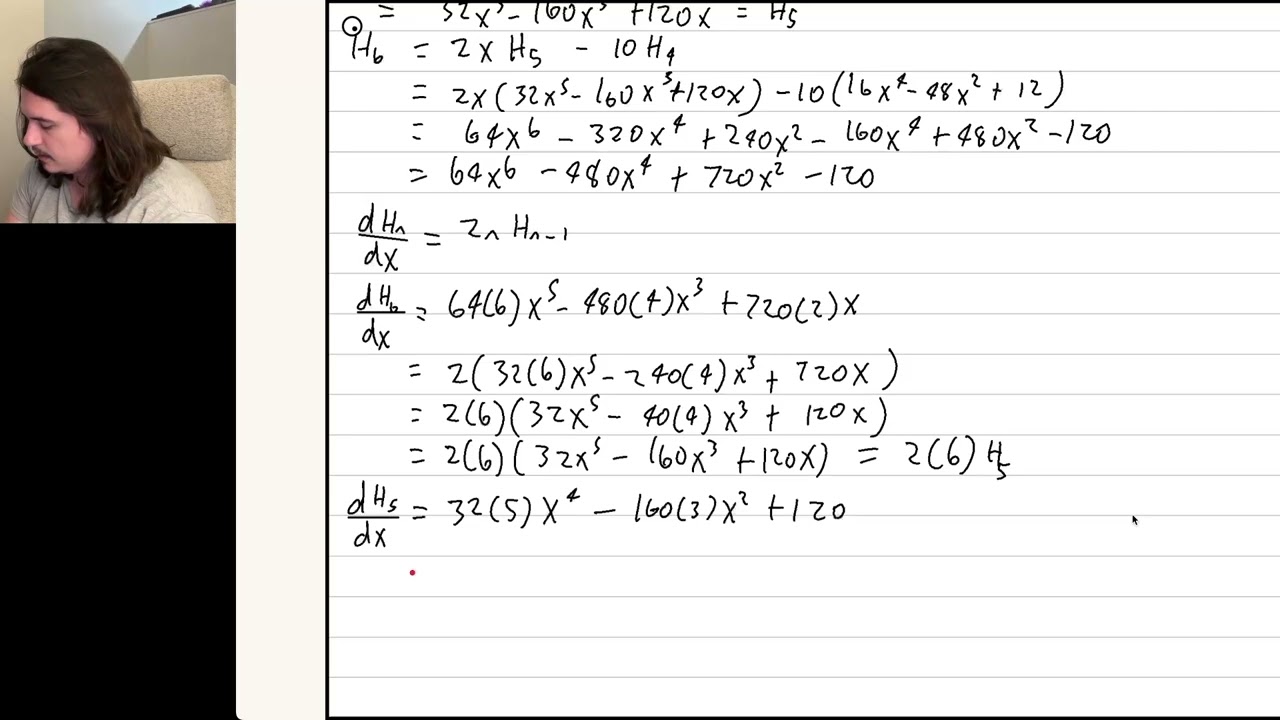 = 32x⁵ - 160x³ + 120x = H₅
H₆ = 2x H₅ - 10 H₄
= 2x(32x⁵ - 160x³ + 120x) - 10(16x⁴ - 48x² + 12)
= 64x⁶ - 320x⁴ + 240x² - 160x⁴ + 480x² - 120
= 64x⁶ - 480x⁴ + 720x² - 120
dHₙ/dx = 2n Hₙ₋₁
dH₆/dx = 64(6)x⁵ - 480(4)x³ + 720(2)x
= 2(32(6)x⁵ - 240(4)x³ + 720x)
= 2(6)(32x⁵ - 40(4)x³ + 120x)
= 2(6)(32x⁵ - 160x³ + 120x) = 2(6)H₅
dH₅/dx = 32(5)x⁴ - 160(3)x² + 120